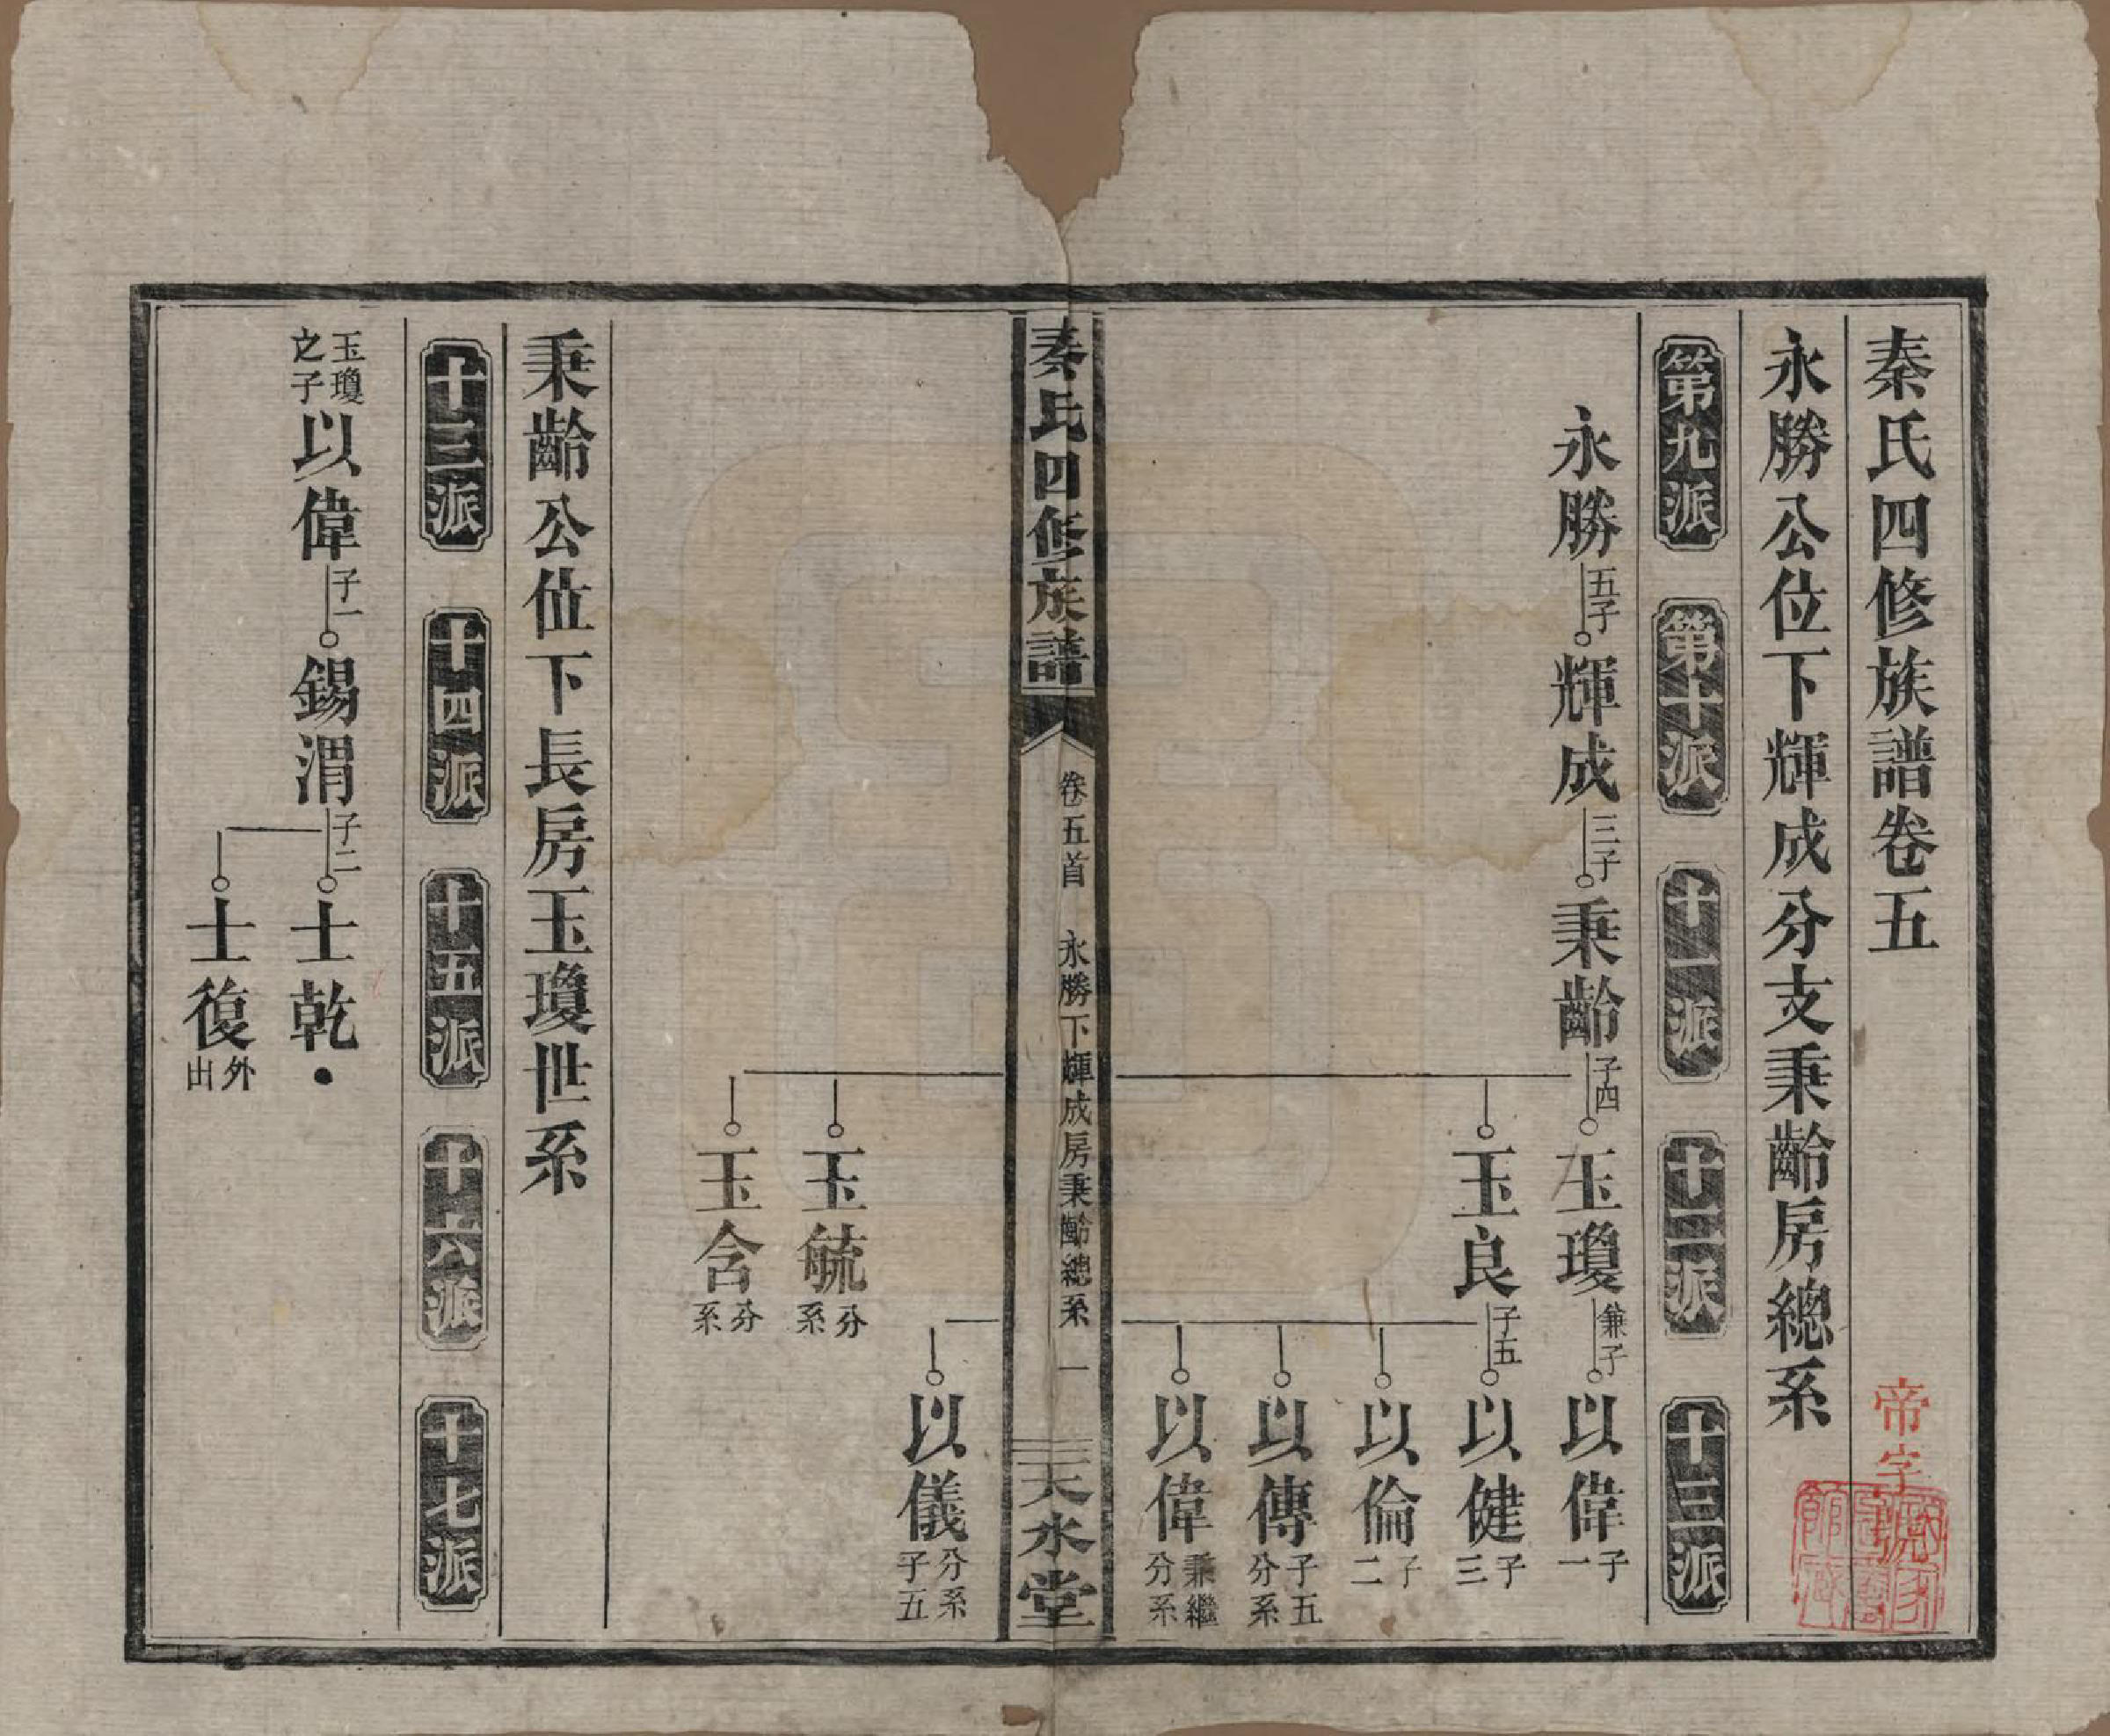 秦氏四修族譜卷五
帝字號
永勝公位下輝成分支秉齡房總系
第九派
第十派
十一派
十二派
十三派
永勝 五子 輝成 三子 秉齡 子四 玉瓊 兼子 以偉 子一
玉良 子五 以健 子三
以倫 子二
以傳 子五分系
以偉 兼繼分系
秦氏四修族譜
卷五首
永勝下輝成房秉齡總系
一
天水堂
以儀 分系子五
玉毓 分系
玉含 分系
秉齡公位下長房玉瓊世系
十三派
十四派
十五派
十六派
十七派
玉瓊之子 以偉 子一 錫渭 子二 士乾
士復 外出